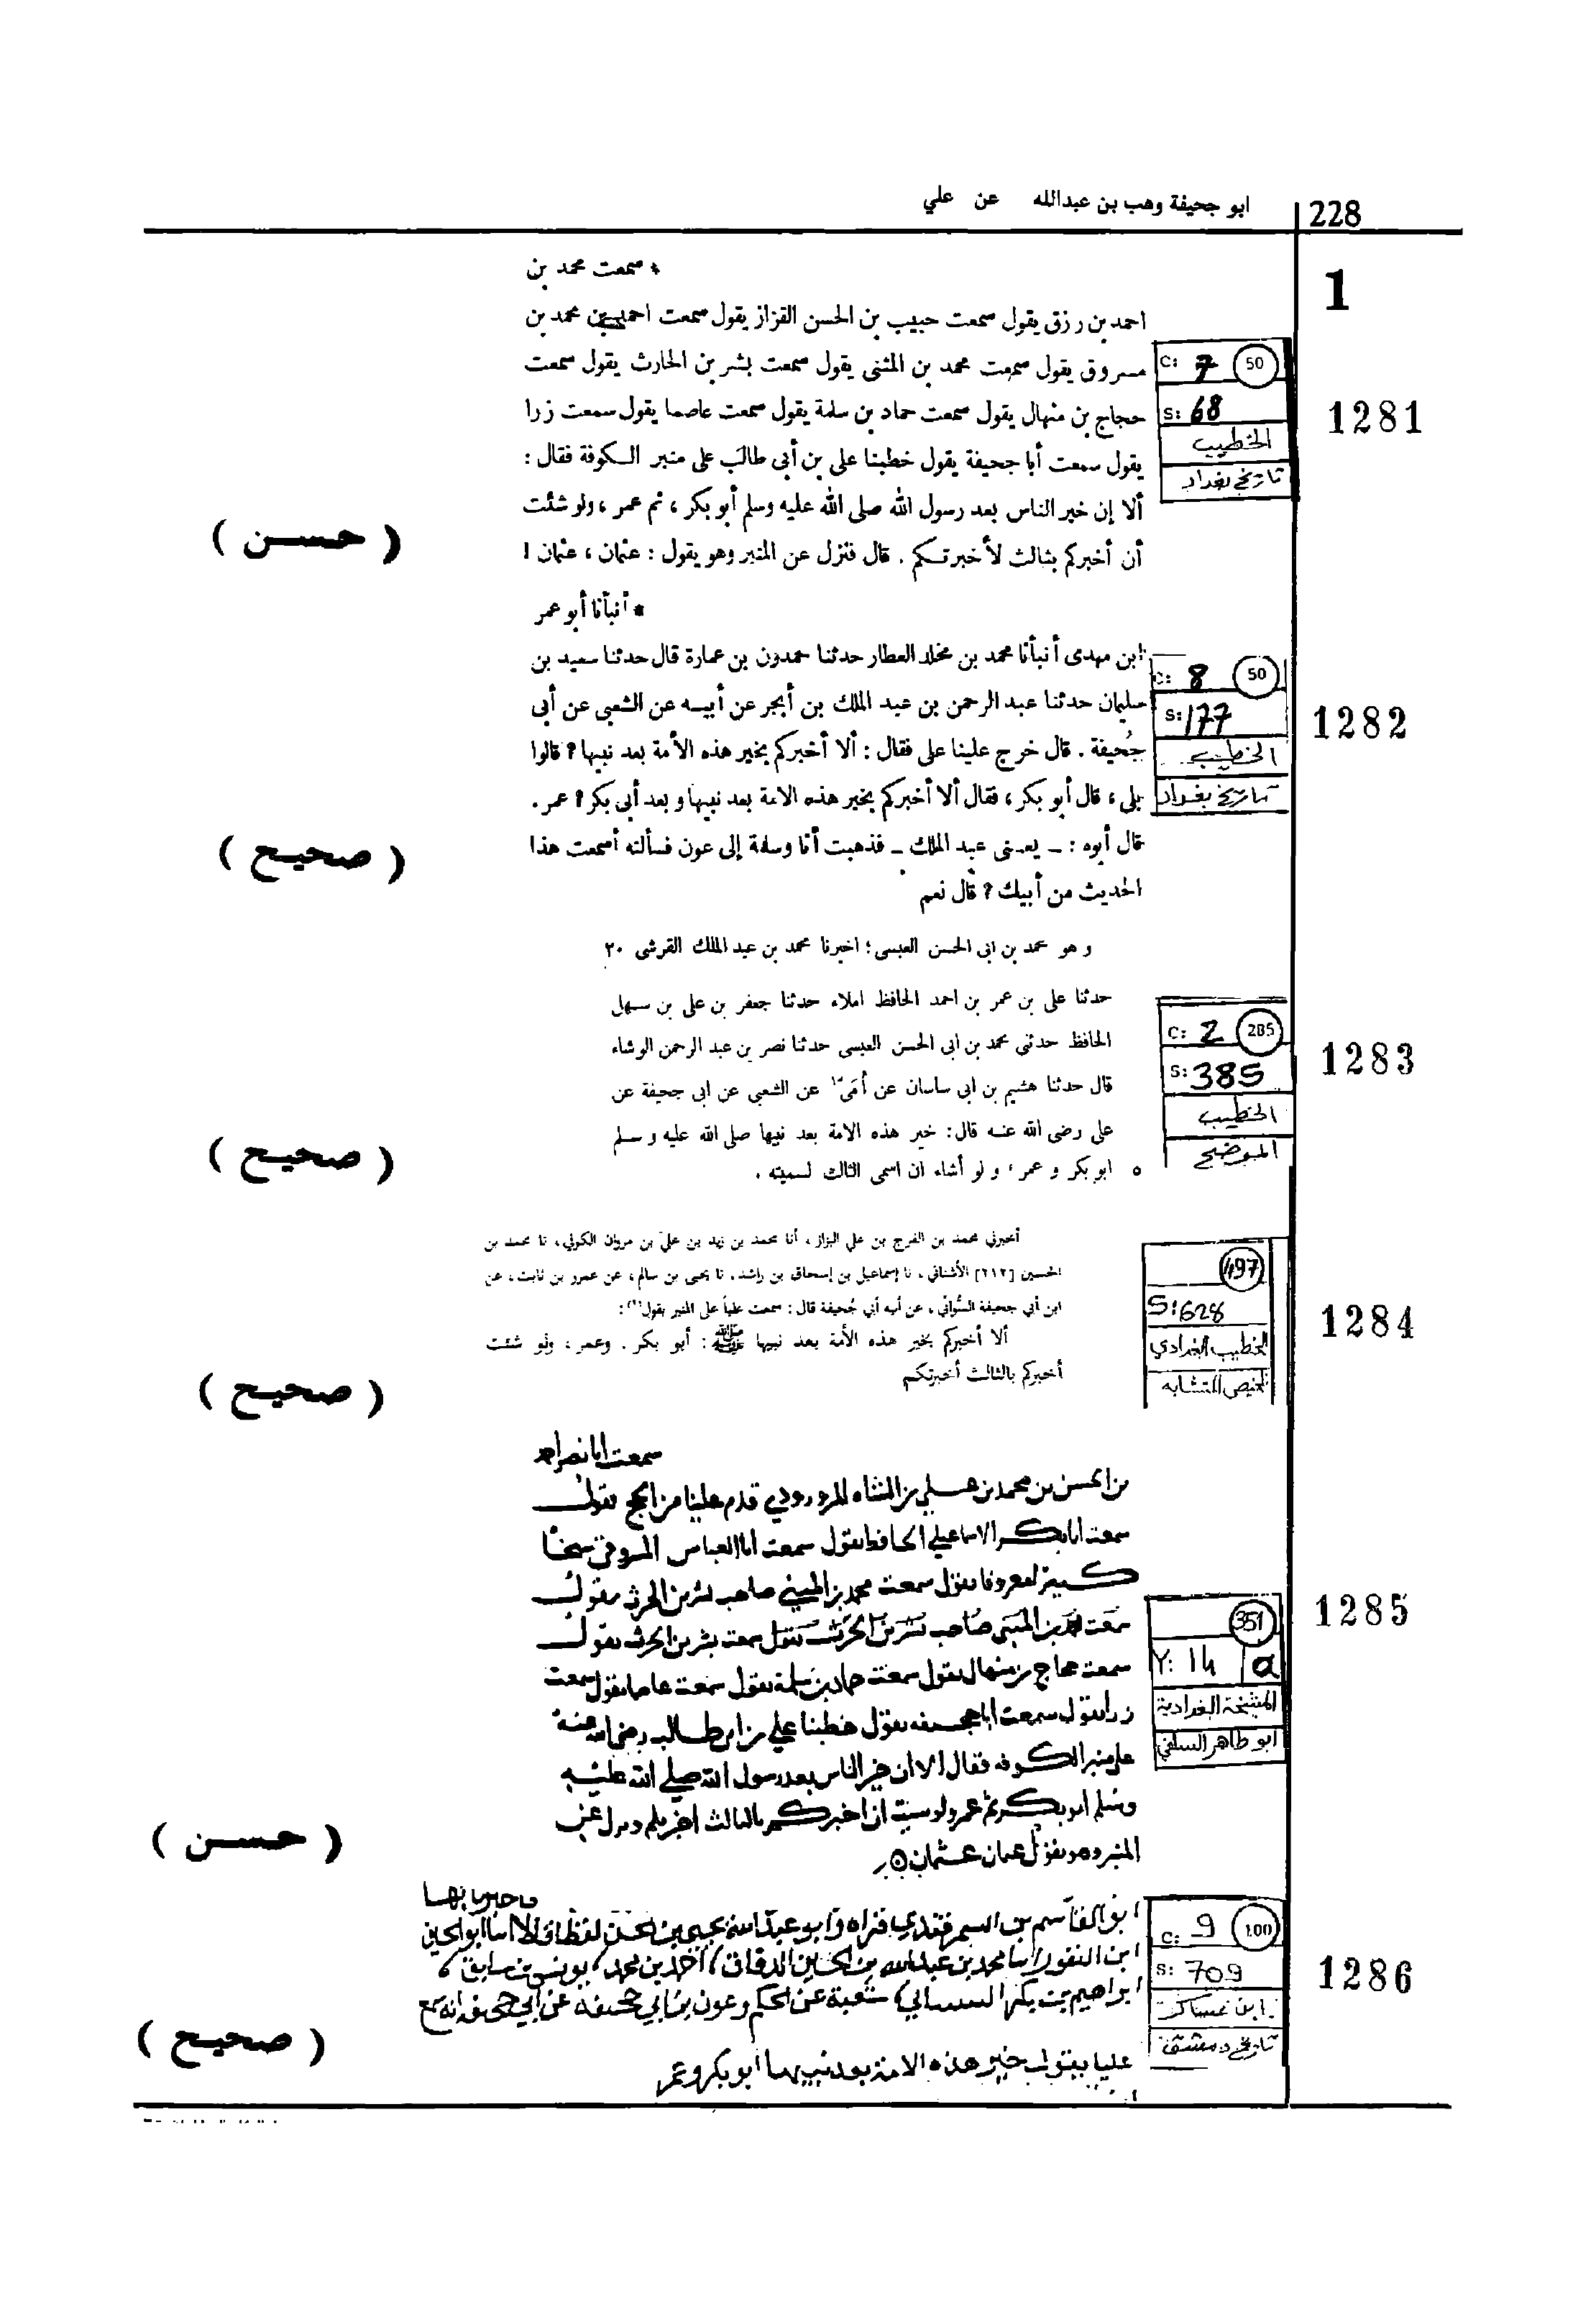 228
ابو جحيفة وهب بن عبدالله عن علي
1
* سمعت محمد بن
احمد بن رزق يقول سمعت حبيب بن الحسن القزاز يقول سمعت احمد بن محمد بن
مسروق يقول سمعت محمد بن المثنى يقول سمعت بشر بن الحارث يقول سمعت
حجاج بن منهال يقول سمعت حماد بن سلمة يقول سمعت عاصما يقول سمعت زرا
يقول سمعت أبا جحيفة يقول خطبنا على بن أبى طالب على منبر الكوفة فقال :
ألا إن خير الناس بعد رسول الله صلى الله عليه وسلم أبو بكر ، ثم عمر ، ولو شئت
أن أخبركم بثالث لأخبرتكم . قال فنزل عن المنبر وهو يقول : عثمان ، عثمان !
C: 7 50
S: 68
الخطيب
تاريخ بغداد
1281
( حسن )
* أنبأنا أبو عمر
ابن مهدى أنبأنا محمد بن مخلد العطار حدثنا حمدون بن عمارة قال حدثنا سعيد بن
سليمان حدثنا عبد الرحمن بن عبد الملك بن أبجر عن أبيه عن الشعبى عن أبى
جُحيفة . قال خرج علينا على فقال : ألا أخبركم بخير هذه الأمة بعد نبيها ؟ قالوا
بلى ، قال أبو بكر ، فقال ألا أخبركم بخير هذه الامة بعد نبيها و بعد أبى بكر ؟ عمر .
قال أبوه : ـ يعنى عبد الملك ـ فذهبت أنا وسلمة إلى عون فسألته أسمعت هذا
الحديث من أبيك ؟ قال نعم
C: 8 50
S: 177
الخطيب
تاريخ بغداد
1282
( صحيح )
و هو محمد بن ابى الحسن العبسى ؛ اخبرنا محمد بن عبد الملك القرشى ٢٠
حدثنا على بن عمر بن احمد الحافظ املاء حدثنا جعفر بن على بن سهل
الحافظ حدثنى محمد بن ابى الحسن العبسى حدثنا نصر بن عبد الرحمن الوشاء
قال حدثنا هشيم بن ابى ساسان عن أُمَىّ عن الشعبى عن ابى جحيفة عن
على رضى الله عنه قال : خير هذه الامة بعد نبيها صلى الله عليه و سلم
٥ ابو بكر و عمر ، و لو أشاء ان اسمى الثالث لسميته .
C: 2 285
S: 385
الخطيب
الموضح
1283
( صحيح )
أخبرني محمد بن الفرج بن علي البزاز ، أنا محمد بن زيد بن علي بن مروان الكوفي ، نا محمد بن
الحسين [٢١٢] الأشناني ، نا إسماعيل بن إسحاق بن راشد ، نا يحيى بن سالم ، عن عمرو بن ثابت ، عن
ابن أبي جحيفة السُّوائي ، عن أبيه أبي جُحيفة قال : سمعت علياً على المنبر يقول (١) :
ألا أخبركم بخير هذه الأمة بعد نبيها ﷺ : أبو بكر . وعمر ، ولو شئت
أخبركم بالثالث أخبرتكم
497
S: 628
الخطيب البغدادي
تلخيص المتشابه
1284
( صحيح )
سمعت ابا نصر احمد
بن الحسن بن محمد بن علي بن الشاه المروروذي قدم علينا من الحج يقول
سمعت ابا بكر الاسماعيلي الحافظ يقول سمعت ابا العباس
يقول سمعت محمد بن المثنى صاحب بشر بن الحرث يقول
سمعت محمد بن المثنى صاحب بشر بن الحرث يقول سمعت بشر بن الحرث يقول
سمعت حجاج بن منهال يقول سمعت حماد بن سلمة يقول سمعت عاصما يقول سمعت
زرا يقول سمعت ابا جحيفه يقول خطبنا علي بن ابي طالب رضي الله عنه
على منبر الكوفه فقال الا ان خير الناس بعد رسول الله صلى الله عليه
وسلم ابو بكر ثم عمر ولو شيت ان اخبركم بالثالث ونزل عن
المنبر وهو يقول عثمان عثمان
351
Y: 14 a
المشيخة البغدادية
ابو طاهر السلفي
1285
( حسن )
ابو القاسم بن السمرقندي قراه وابو عبد الله يحيى بن الحسن لفظا قالا انا ابو الحسين
ابن النقور انا محمد بن عبد الله بن الحسين الدقاق احمد بن محمد يونس بن سابق
ابراهيم بن بكر شعبة عن الحكم وعون بن ابي جحيفه عن ابي جحيفه انه سمع
عليا يقول خير هذه الامة بعد نبيها ابو بكر وعمر
C: 9 100
S: 709
ابن عساكر
تاريخ دمشق
1286
( صحيح )